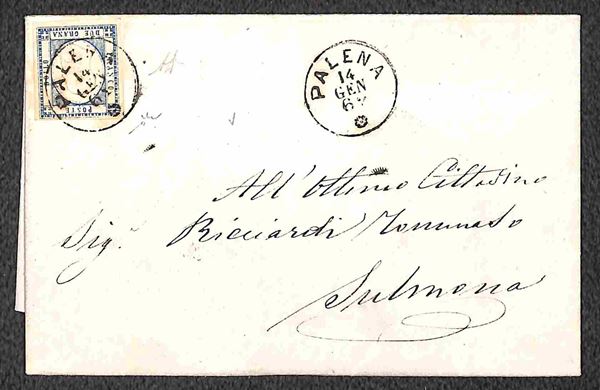 BOLLO
DUE GRANA
FRANCO
POSTE
PALENA
14
GEN
PALENA
14
GEN
All'Ottimo Cittadino
Sig.r Ricciardi Tommaso
Sulmona